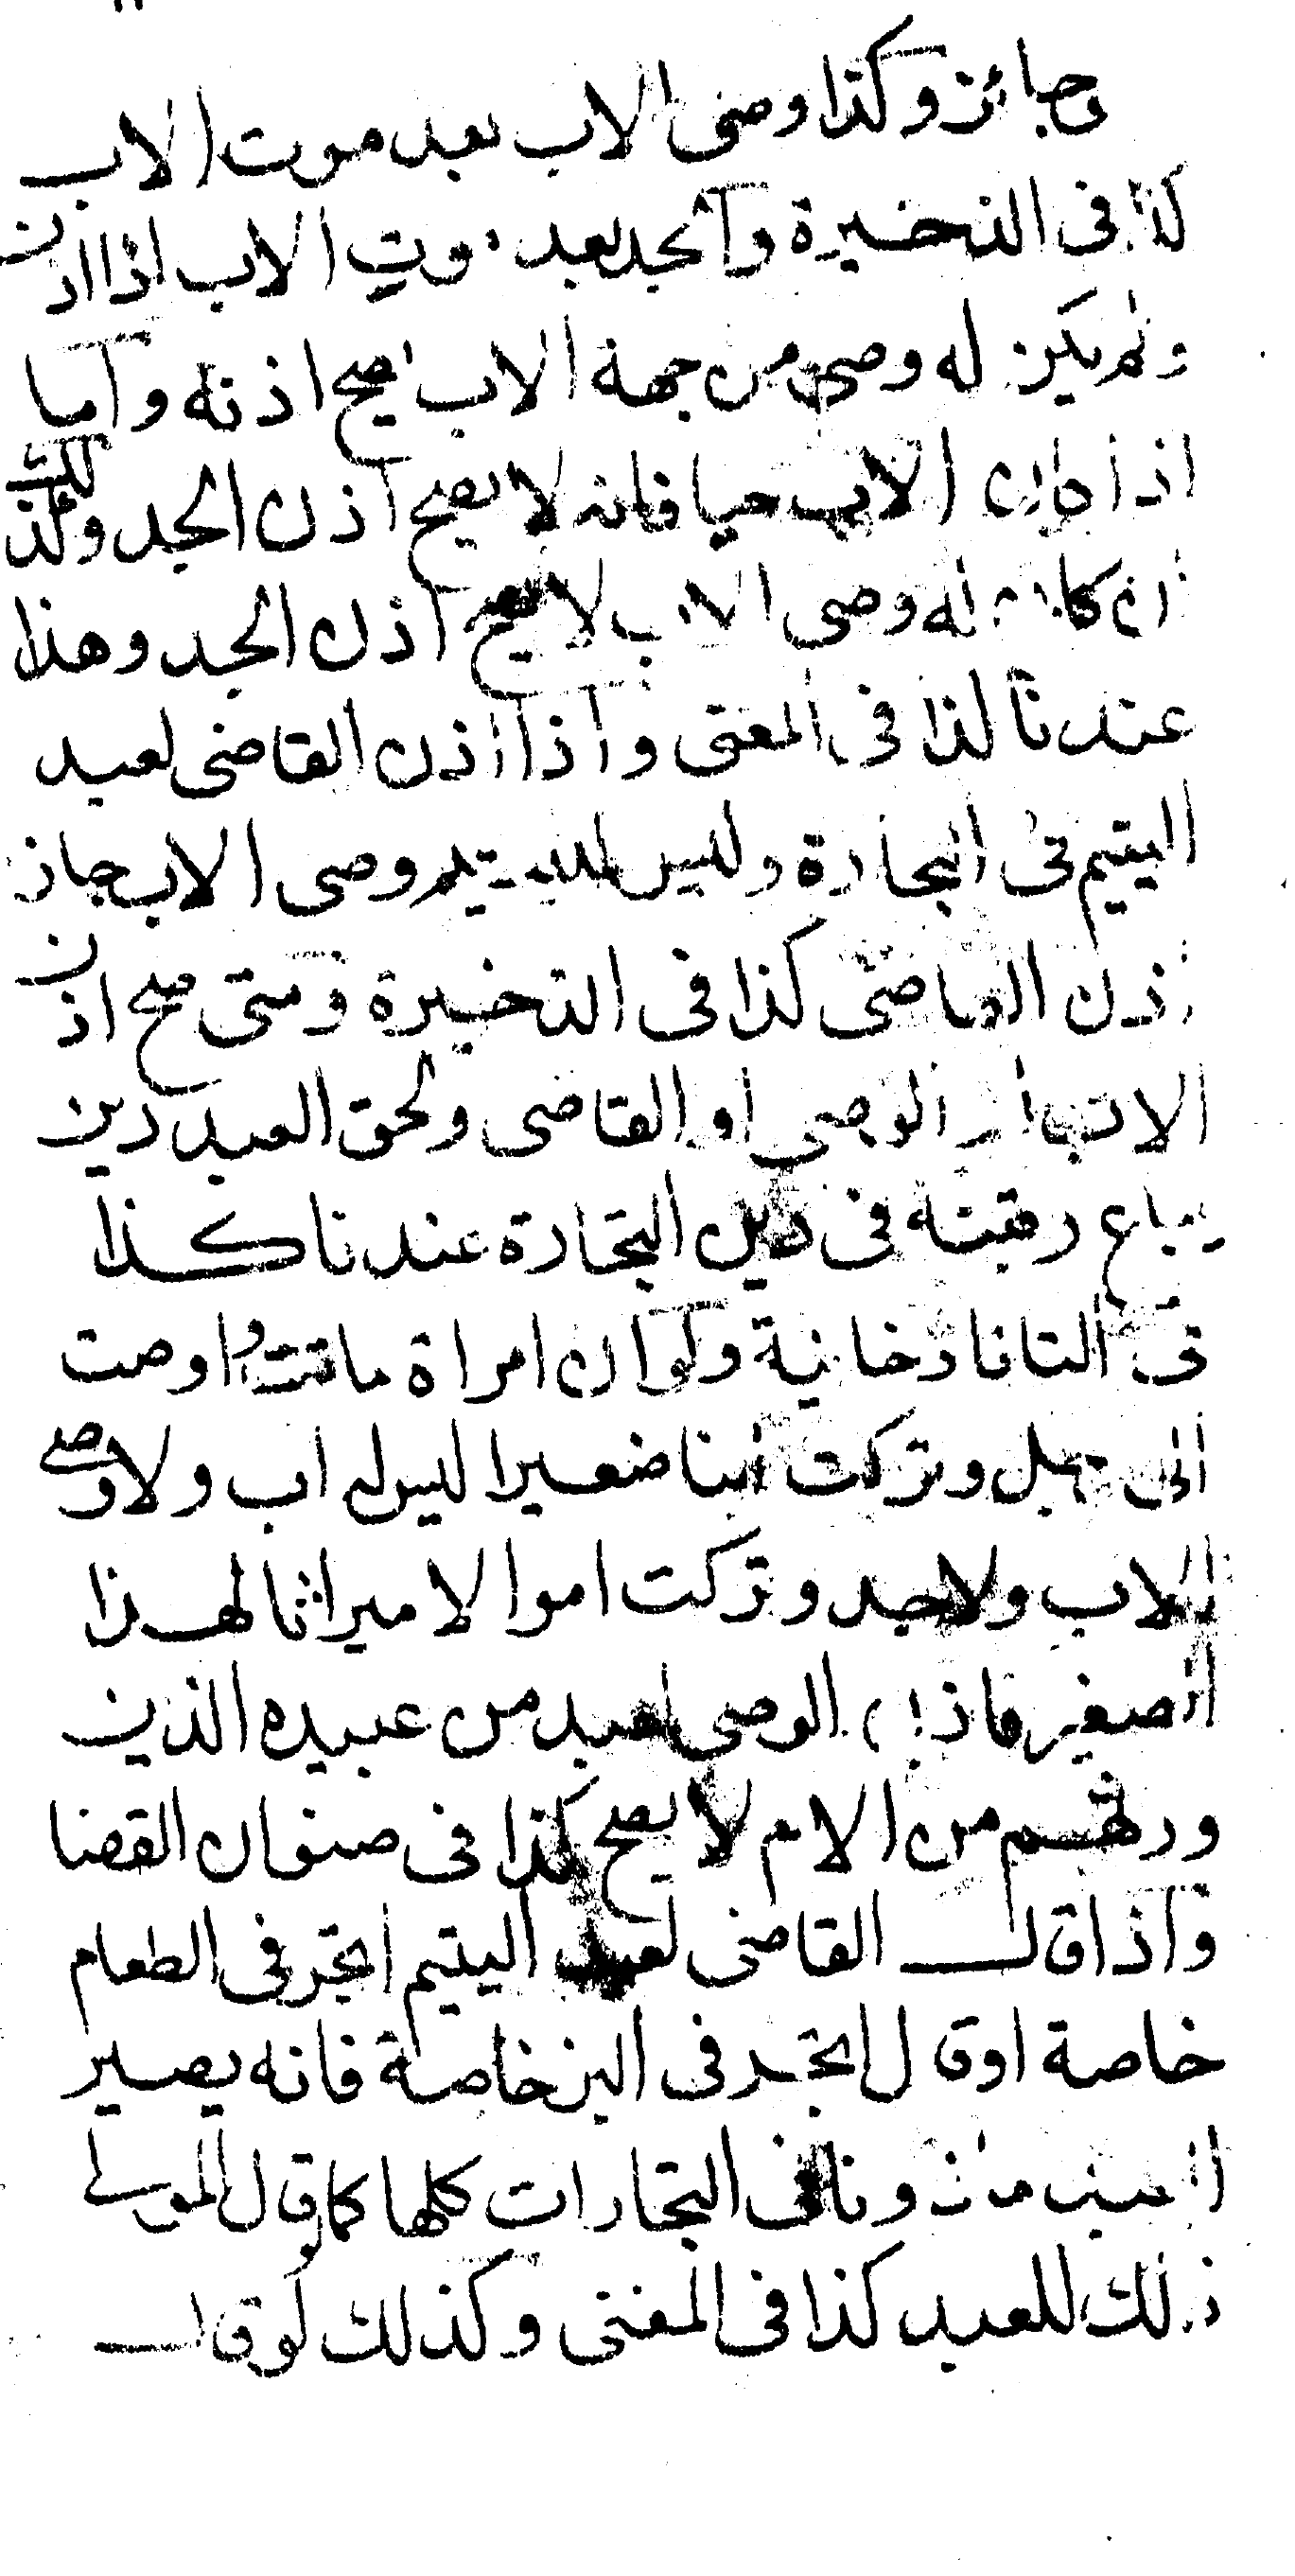 جائز وكذا وصى الاب بعد موت الاب
كذا فى الذخيرة والجد بعد موت الاب اذا اذن
ولم يكن له وصى من جهة الاب يصح اذنه واما
اذا كان الاب حيا فانه لا يصح اذن الجد وكذلك
ان كان له وصى الاب لا يصح اذن الجد وهذا
عندنا كذا فى المغنى واذا اذن القاضى لعبد
اليتيم فى التجارة وليس لليتيم وصى الاب جاز
اذن القاضى كذا فى الذخيرة ومتى صح اذن
الاب او الوصى او القاضى ولحق العبد دين
يباع رقبته فى دين التجارة عندنا كذا
فى التاتارخانية ولو ان امراة ماتت واوصت
الى رجل وتركت ابنا صغيرا ليس له اب ولا وصى
الاب ولا جد وتركت اموالا ميراثا لهذا
الصغير فاذن الوصى لعبد من عبيده الذين
ورثهم من الام لا يصح كذا فى صنوان القضا
واذا قال القاضى لعبد اليتيم اتجر فى الطعام
خاصة او قال اتجر فى البز خاصة فانه يصير
العبد ماذونا فى التجارات كلها كما لو قال المولى
ذلك للعبد كذا فى المغنى وكذلك لو قال